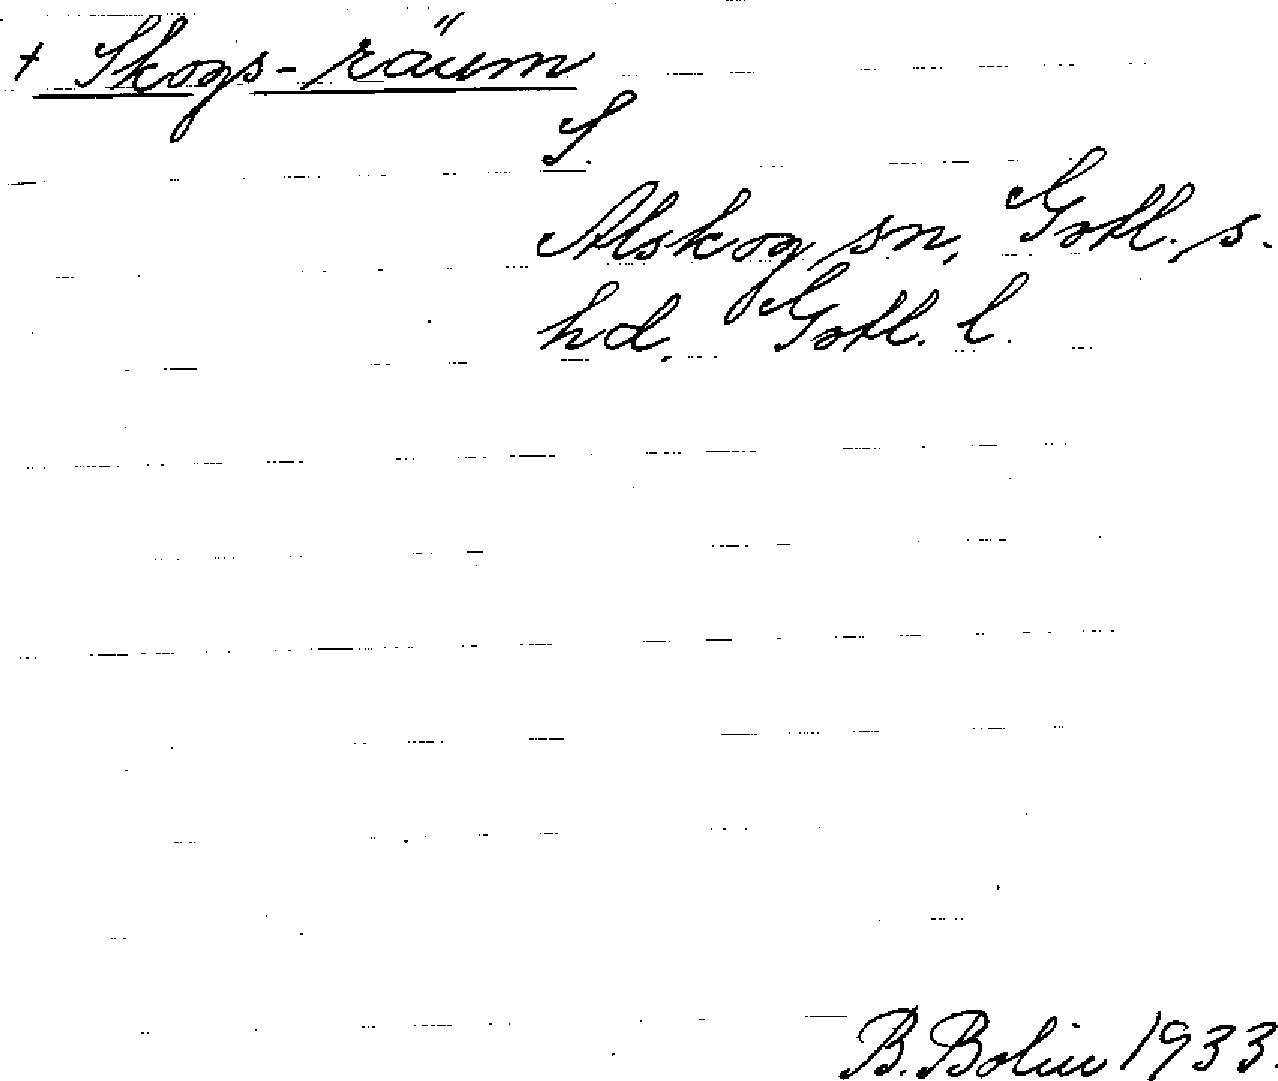 + Skogs-räum
S.
Alskog sn, Gotl. s.
hd. Gotl. l.
B. Bolin 1933.